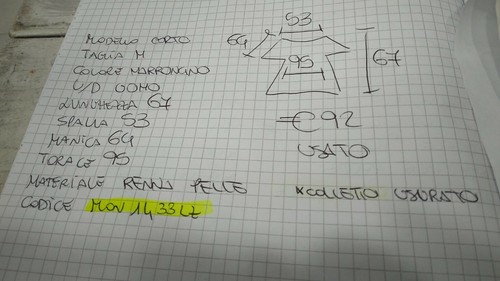 MODELLO CORTO
TAGLIA M
COLORE MARRONCINO
U/D UOMO
LUNGHEZZA 67
SPALLA 53
MANICA 64
TORACE 95
MATERIALE RENNA PELLE
CODICE MON1433LZ
53
64
95
67
€92
USATO
*COLLETTO USURATO